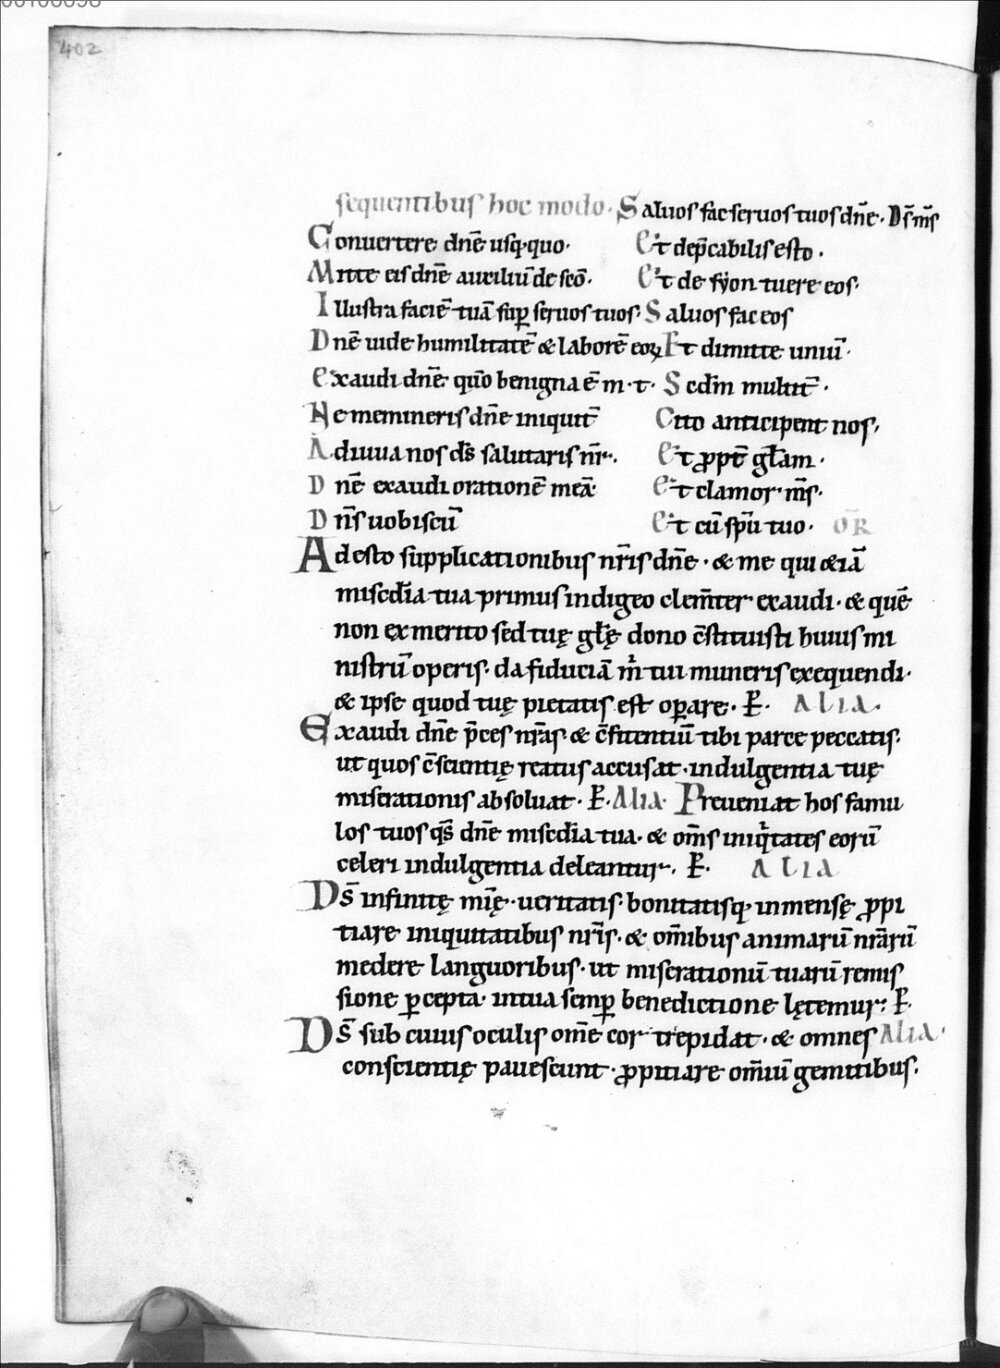 402
sequentibus hoc modo. Saluos fac seruos tuos dn̄e. Ds̄ m̄s
Conuertere dn̄e usq; quo. Et dep̄cabilis esto.
Mitte eis dn̄e auxiliū de sc̄o. Et de syon tuere eos.
Illustra faciē tuā suꝑ seruos tuos. Saluos fac eos
Dn̄e uide humilitatē & laborē eoꝝ Et dimitte uniū.
Exaudi dn̄e qūo benigna ē m. t. Scd̄m multit̄.
Ne memineris dn̄e iniquit̄ Cito anticipent nos.
Adiuua nos ds̄ salutaris nr̄. Et ꝓpt̄ gl̄am.
Dn̄e exaudi orationē meā. Et clamor m̄s.
Dn̄s uobiscū Et cū sp̄u tuo. OR̄
Adesto supplicationibus nr̄is dn̄e. & me qui &iā
misc̄dia tua primus indigeo clem̄ter exaudi. & quē
non ex merito sed tuę gl̄ę dono c̄stituisti huius mi
nistrū operis. da fiduciā m̍ tui muneris exequendi.
& ipse quod tuę pietatis est oꝑare. P̄. ALIA.
Exaudi dn̄e p̄ces nr̄as & c̄fitentiū tibi parce peccatis.
ut quos c̄scientię reatus accusat. indulgentia tuę
miserationis absoluat. P̄. Alia. Preueniat hos famu
los tuos qs̄ dn̄e misc̄dia tua. & om̄s iniq̍tates eorū
celeri indulgentia deleantur. P̄. ALIA
Ds̄ infinitę mīę. ueritatis bonitatisq; inmensę ꝓpi
tiare iniquitatibus nr̄is. & om̄ibus animarū nr̄arū
medere languoribus. ut miserationū tuarū remis
sione ꝑcepta. in tua semꝑ benedictione lętemur. P̄.
Ds̄ sub cuius oculis om̄e cor trepidat. & omnes Alia.
conscientię pauescunt. ꝓpitiare om̄iū gemitibus.